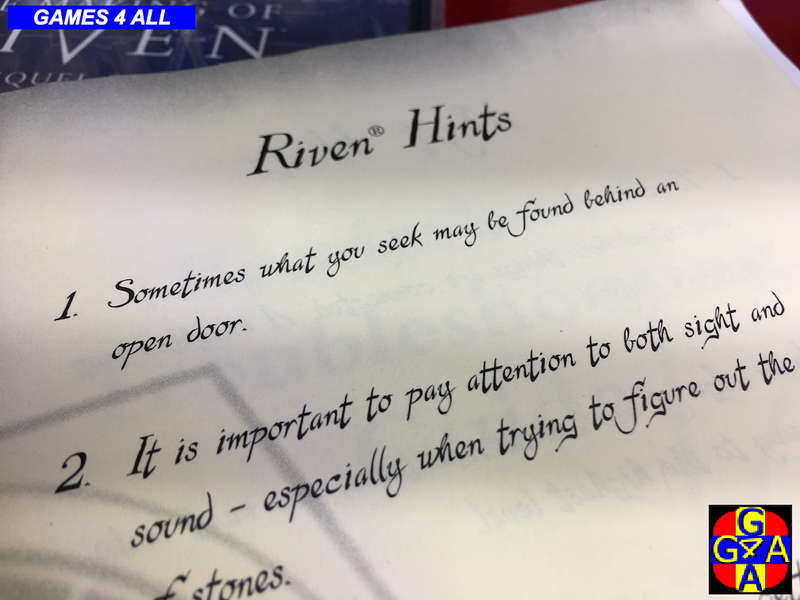 GAMES 4 ALL
OF
IVEN
Riven® Hints
1. Sometimes what you seek may be found behind an
open door.
2. It is important to pay attention to both sight and
sound - especially when trying to figure out the
of stones.
G
G4A
A